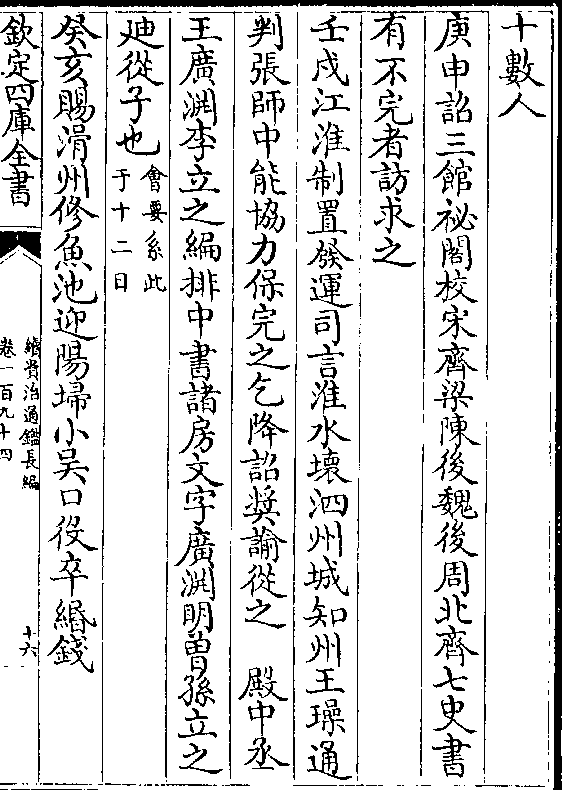 十數人
庚申詔三館祕閣校宋齊梁陳後魏後周北齊七史書
有不完者訪求之
壬戌江淮制置發運司言淮水壞泗州城知州王璪通
判張師中能協力保完之乞降詔奬諭從之　殿中丞
王廣淵李立之編排中書諸房文字廣淵明曽孫立之
廸從子也會要系此
于十二日
癸亥賜滑州修魚池迎陽埽小吴口役卒緡錢
欽定四庫全書
續資治通鑑長編
卷一百九十四
十六